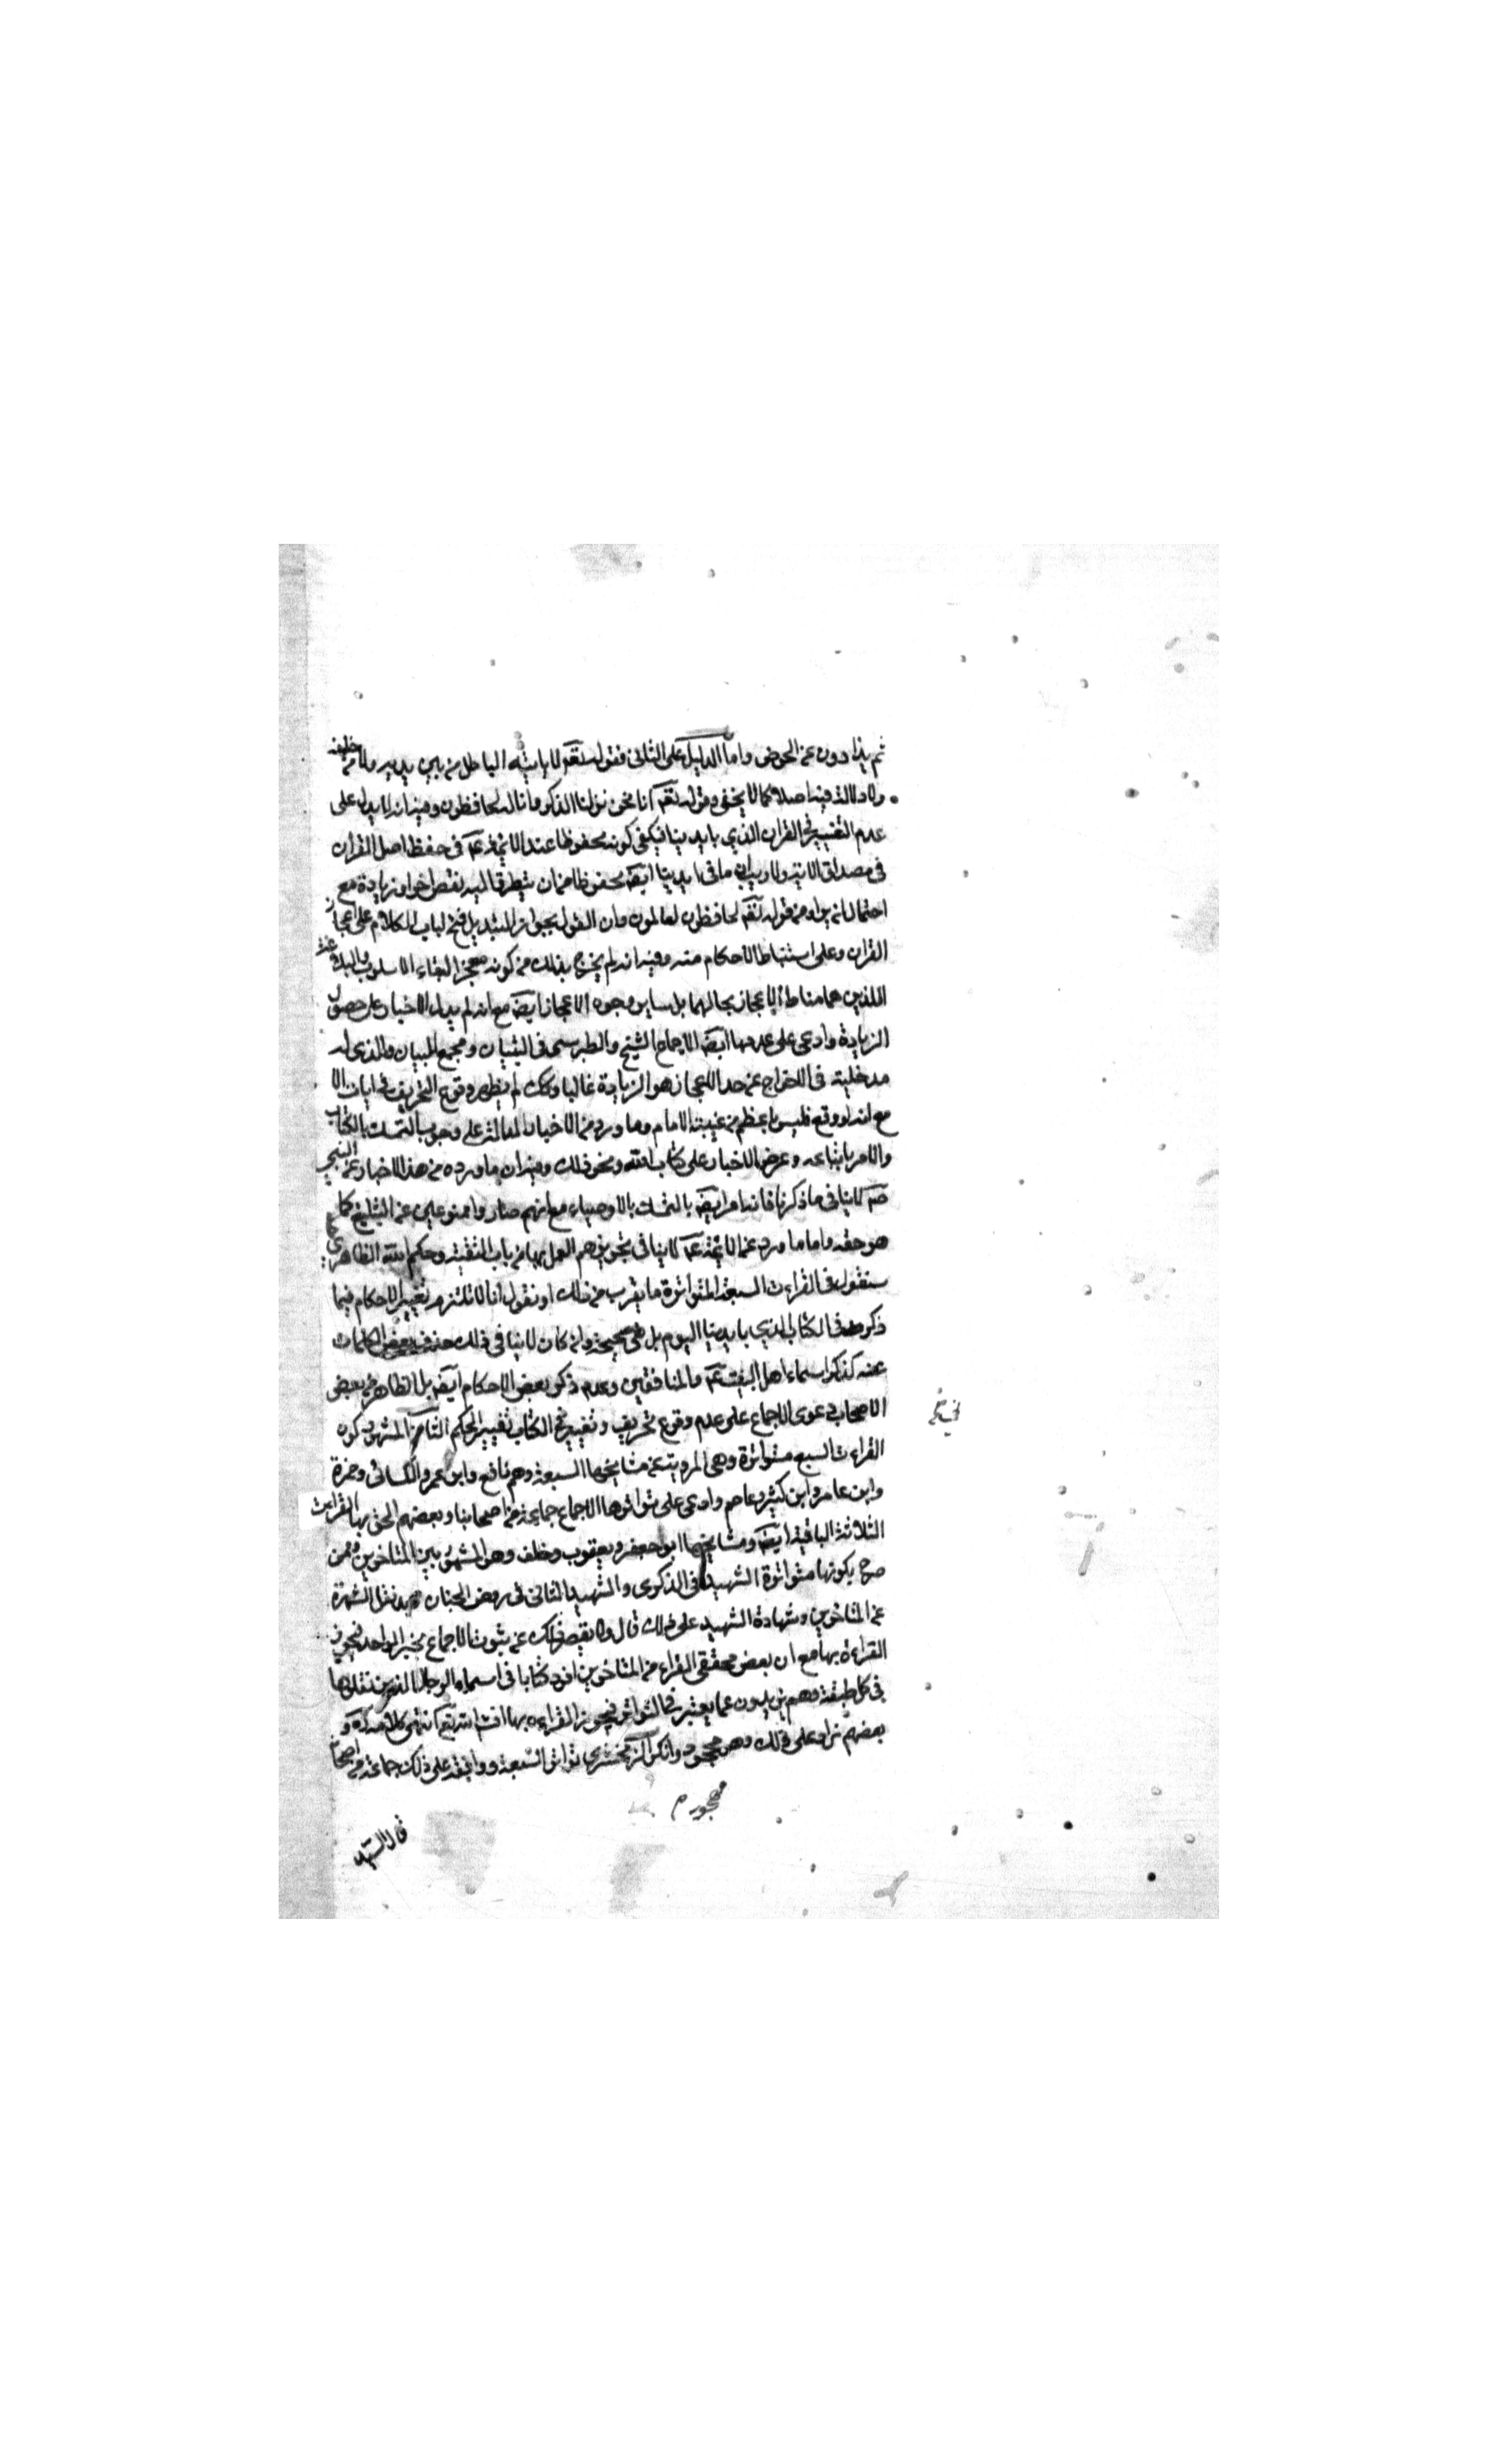 ثم يذادون عن الحوض واما الدليل على الثانى فقوله تعم لا ياتيه الباطل من بين يديه ولا من خلفه
ولا دلالة فيه اصلا كما لا يخفى وقوله تعم انا نحن نزلنا الذكر وانا له لحافظون وفيه انه لا يدل على
عدم التغيير فى القران الذي بايدينا فيكفى كونه محفوظا عند الائمة عم فى حفظ اصل القران
فى مصداق الاية ولا ريب ان ما فى ايدينا ايضا محفوظ من ان يتطرق اليه نقص اخر او زيادة مع
احتمال ان يراد من قوله تعم لحافظون لعالمون وان القول بجواز التبديل فتح لباب الكلام على اعجاز
القران وعلى استنباط الاحكام منه وفيه انه لم يخرج بذلك من كونه معجزا لبقاء الاسلوب والبلاغة
اللذين هما مناط الاعجاز بحالهما بل ساير وجوه الاعجاز ايضا مع انه لم يدل الاخبار على حصول
الزيادة وادعى على عدمها ايضا الاجماع الشيخ والطبرسى فى التبيان ومجمع البيان والذى له
مدخلية فى الاخراج عن حد الاعجاز هو الزيادة غالبا وكك لم يظهر وقوع التحريف فى ايات الا
مع انه لو وقع فليس باعظم من غيبة الامام وما ورد من الاخبار الدالة على وجوب التمسك بالكتاب
والامر باتباعه وعرض الاخبار على كتاب الله ونحو ذلك وفيه ان ما ورد من هذا الاخبار عن النبى
صم لا ينافى ما ذكرنا فانه امر ايضا بالتمسك بالاوصياء مع انهم صاروا ممنوعين عن التبليغ كما
هو حقه واما ما ورد عن الائمة عم لا ينافى تجويزهم العمل بها من باب التقية وحكم الله الظاهرى كما
سنقول فى القراءت السبعة المتواترة ما يقرب من ذلك او نقول انا لا نلتزم تغيير الاحكام فيما
ذكر فى الكتاب الذي بايدينا اليوم بل هى صحيحة وان كان لا ينافى ذلك حذف بعض الكلمات
عنه كذكر اسماء اهل البيت عم والمنافقين وعدم ذكر بعض الاحكام ايضا بل الظاهر من بعض
الاصحاب دعوى الاجماع على عدم وقوع تحريف وتغيير فى الكتاب تغيير الحكم الثامن المشهور كون
القراءت السبع متواترة وهى المروية عن مشايخها السبعة وهم نافع وابن عمرو والكسائى وحمزة
وابن عامر وابن كثير وعاصم وادعى على تواترها الاجماع جماعة من اصحابنا وبعضهم الحق بها القراءت
الثلاثة الباقية ايضا ومشايخها ابو جعفر ويعقوب وخلف وهو المشهور بين المتاخرين وممن
صرح بكونها متواترة الشهيد فى الذكرى والشهيد الثانى فى روض الجنان بعد نقل الشهرة
عن المتاخرين وشهادة الشهيد على ذلك قال ولا يقصر ذلك عن ثبوت الاجماع بخبر الواحد فيجوز
القراءة بها مع ان بعض محققى القراء من المتاخرين افرد كتابا فى اسماء الرجال الذين نقلوها
فى كل طبقة وهم يزيدون عما يعتبر فى التواتر فيجوز القراءه بها انش الله تعم انتهى كلامه ره و
بعضهم زاد على ذلك وهو مهجور وانكر الزمخشرى تواتر السبعة ووافقه على ذلك جماعة من اصحابنا
مهجور م
قال السيد